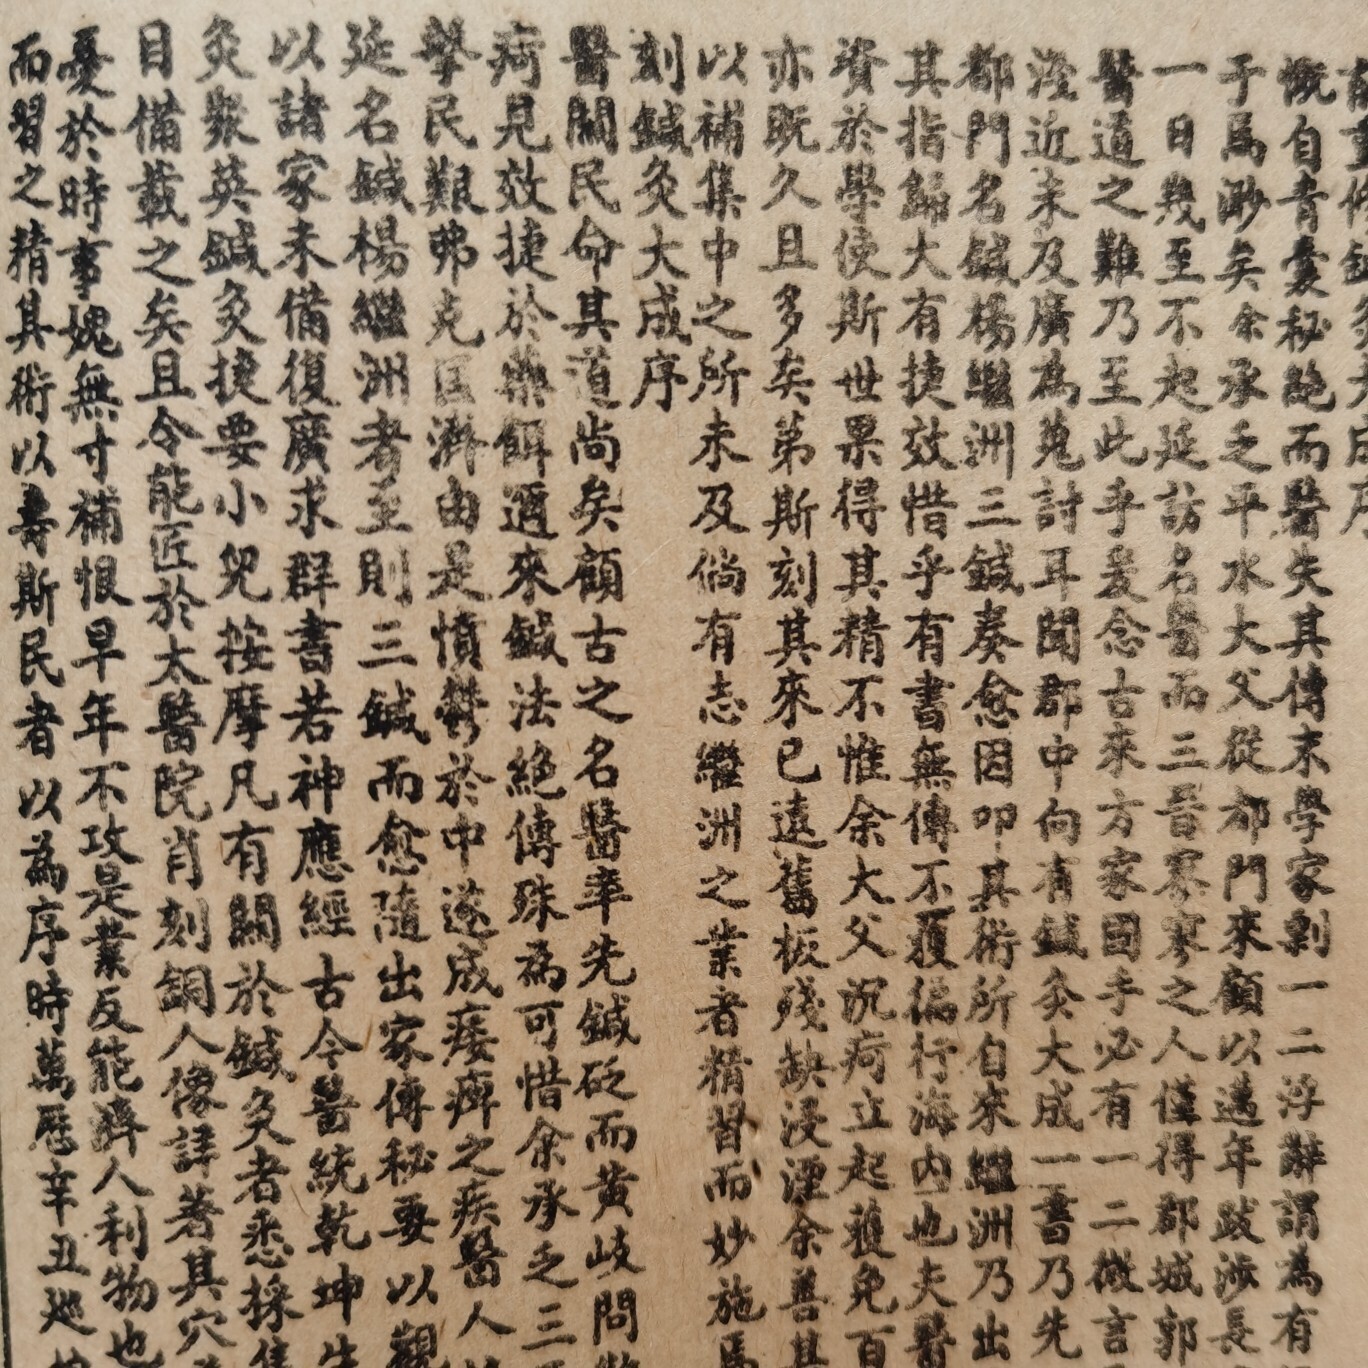 重修鍼灸大成序
慨自青囊秘絶而醫失其傳末學家剽一二浮辭謂為有
于馬渺矣余承乏平水大父從都門來顧以邁年跋涉長
一日幾至不起延訪名醫而三晉寥寥之人僅得郡城郭
醫道之難乃至此乎爰念古來方家國手必有一二微言
淺近未及廣為蒐討耳聞郡中向有鍼灸大成一書乃先
都門名鍼楊繼洲三鍼奏愈因叩其術所自來繼洲乃出
其指歸大有捷效惜乎有書無傳不獲徧行海内也夫醫
資於學使斯世果得其精不惟余大父沉疴立起獲免百
亦既久且多矣第斯刻其來已遠舊板殘缺浸湮余善其
以補集中之所未及倘有志繼洲之業者精習而妙施馬
刻鍼灸大成序
醫關民命其道尚矣顧古之名醫率先鍼砭而黄岐問
疴見效捷於藥餌邇來鍼法絶傳殊為可惜余承乏三
擊民艱弗克匡濟由是憤鬱於中遂成痿痹之疾醫人
延名鍼楊繼洲者至則三鍼而愈隨出家傳秘要以觀
以諸家未備復廣求群書若神應經古今醫統乾坤生
灸聚英鍼灸捷要小兒按摩凡有關於鍼灸者悉採集
目備載之矣且令能匠於太醫院肖刻銅人像詳著其穴
憂於時事媿無寸補恨早年不攻是業反能濟人利物也
而習之精其術以壽斯民者以為序時萬厯辛丑巡